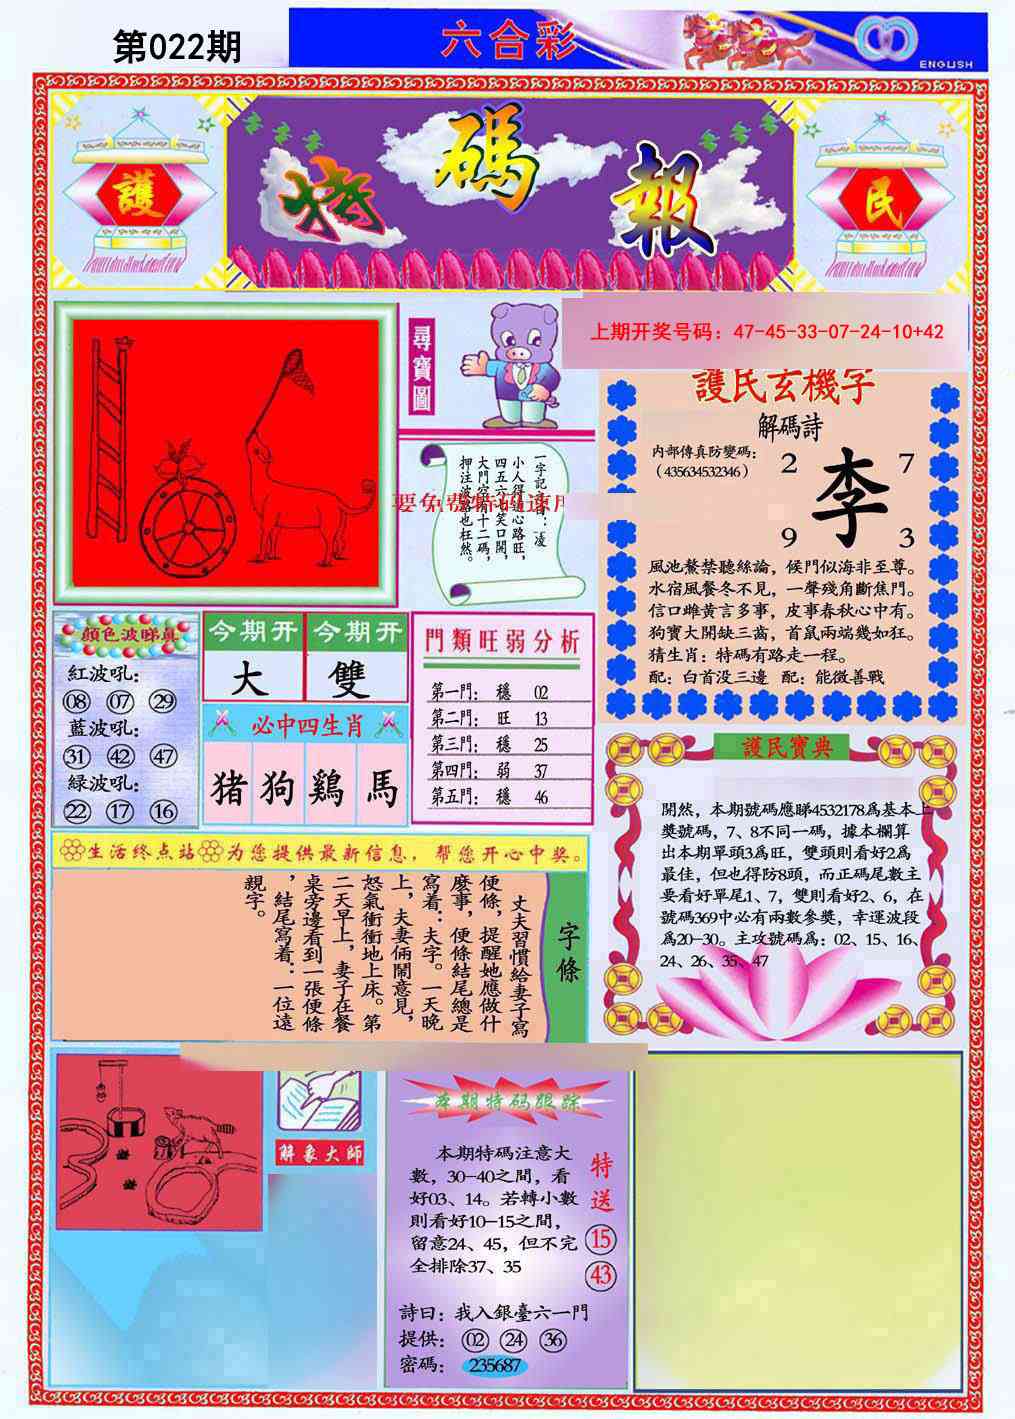 第022期
六合彩
ENGLISH
護
特碼報
民
尋寶圖
上期开奖号码：47-45-33-07-24-10+42
一字記之曰：凌
小人得志心路旺，
四五六七笑口開，
大門穷有十二碼，
押注波路也枉然。
護民玄機字
解碼詩
内部傳真防變碼：
（435634532346）
2 7
李
9 3
風池鰲禁聽絲論，候門似海非至尊。
水宿風餐冬不見，一聲殘角斷焦門。
信口雌黄言多事，皮事春秋心中有。
狗寶大開缺三齒，首鼠兩端幾如狂。
猜生肖：特碼有路走一程。
配：白首没三邊 配：能微善戰
顔色波睇真
紅波吼：
08 07 29
藍波吼：
31 42 47
緑波吼：
22 17 16
今期开 今期开
大 雙
必中四生肖
猪 狗 鷄 馬
門類旺弱分析
第一門： 穩 02
第二門： 旺 13
第三門： 穩 25
第四門： 弱 37
第五門： 穩 46
護民寶典
開然，本期號碼應睇4532178爲基本上
獎號碼，7、8不同一碼，據本欄算
出本期單頭3爲旺，雙頭則看好2爲
最佳，但也得防8頭，而正碼尾數主
要看好單尾1、7，雙則看好2、6，在
號碼369中必有兩數參獎，幸運波段
爲20-30。主攻號碼爲：02、15、16、
24、26、35、47
生活终点站 为您提供最新信息，帮您开心中奖。
字條
丈夫習慣給妻子寫
便條，提醒她應做什
麽事，便條結尾總是
寫着：夫字。一天晚
上，夫妻倆鬧意見，
怒氣衝衝地上床。第
二天早上，妻子在餐
桌旁邊看到一張便條
，結尾寫着：一位遠
親字。
解象大師
本期特码跟踪
本期特碼注意大
數，30-40之間，看
好03、14。若轉小數
則看好10-15之間，
留意24、45，但不完
全排除37、35
特送
15
43
詩曰：我入銀臺六一門
提供： 02 24 36
密碼： 235687